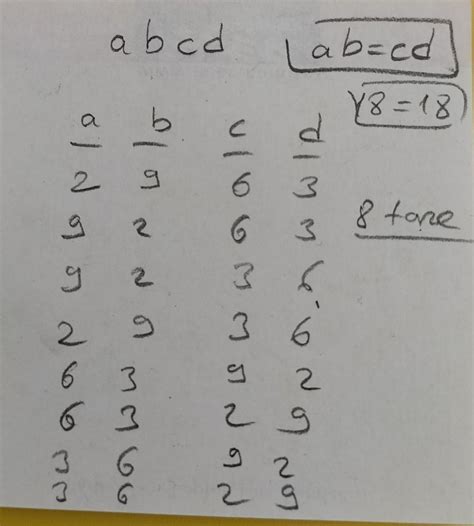 abcd ab=cd
18=18
a b c d
2 9 6 3
9 2 6 3 8 tane
9 2 3 6
2 9 3 6
6 3 9 2
6 3 2 9
3 6 9 2
3 6 2 9